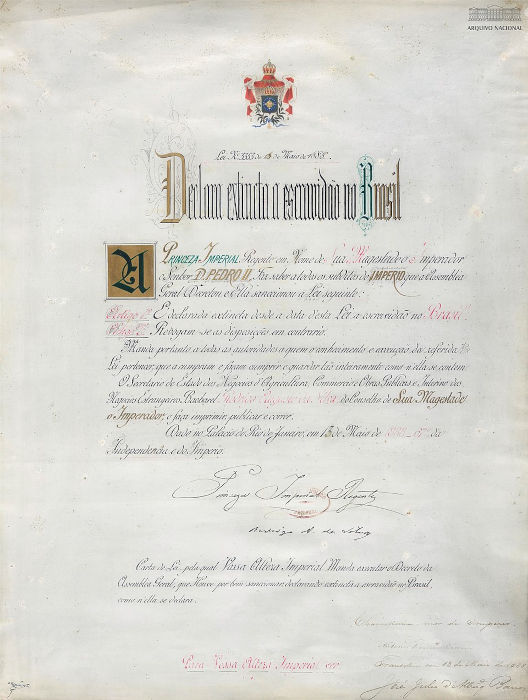 ARQUIVO NACIONAL
Lei Nº 3353 de 13 de Maio de 1888.
Declara extincta a escravidão no Brasil
A PRINCEZA IMPERIAL Regente em Nome de Sua Magestade o Imperador
o Senhor D. PEDRO II, Faz saber a todos os subditos do IMPERIO que a Assembléa
Geral Decretou e Ella sanccionou a Lei seguinte:
Artigo 1º É declarada extincta desde a data desta Lei a escravidão no Brasil.
Revogam-se as disposições em contrario.
Manda portanto a todas as autoridades a quem o conhecimento e execução da referida
Lei pertencer, que a cumpram e façam cumprir e guardar tão inteiramente como n'ella se contem.
O Secretario de Estado dos Negocios d'Agricultura, Commercio e Obras Publicas e Interino dos
Negocios Estrangeiros, Bacharel Rodrigo Augusto da Silva do Conselho de Sua Magestade
o Imperador, o faça imprimir, publicar e correr.
Dado no Palacio do Rio de Janeiro, em 13 de Maio de 1888 - 67º da
Independencia e do Imperio.
Princeza Imperial Regente
Rodrigo A. da Silva
Carta de Lei, pela qual Vossa Alteza Imperial Manda executar o Decreto da
Assembléa Geral, que Houve por bem sanccionar declarando extincta a escravidão no Brasil,
como n'ella se declara.
Para Vossa Alteza Imperial ver